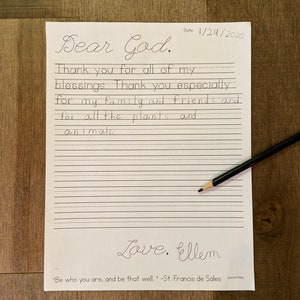 Date: 1/24/2020
Dear God,
Thank you for all of my
blessings. Thank you especially
for my family and friends and
for all the plants and
animals.
Love, Ellem
"Be who you are, and be that well." -St. Francis de Sales